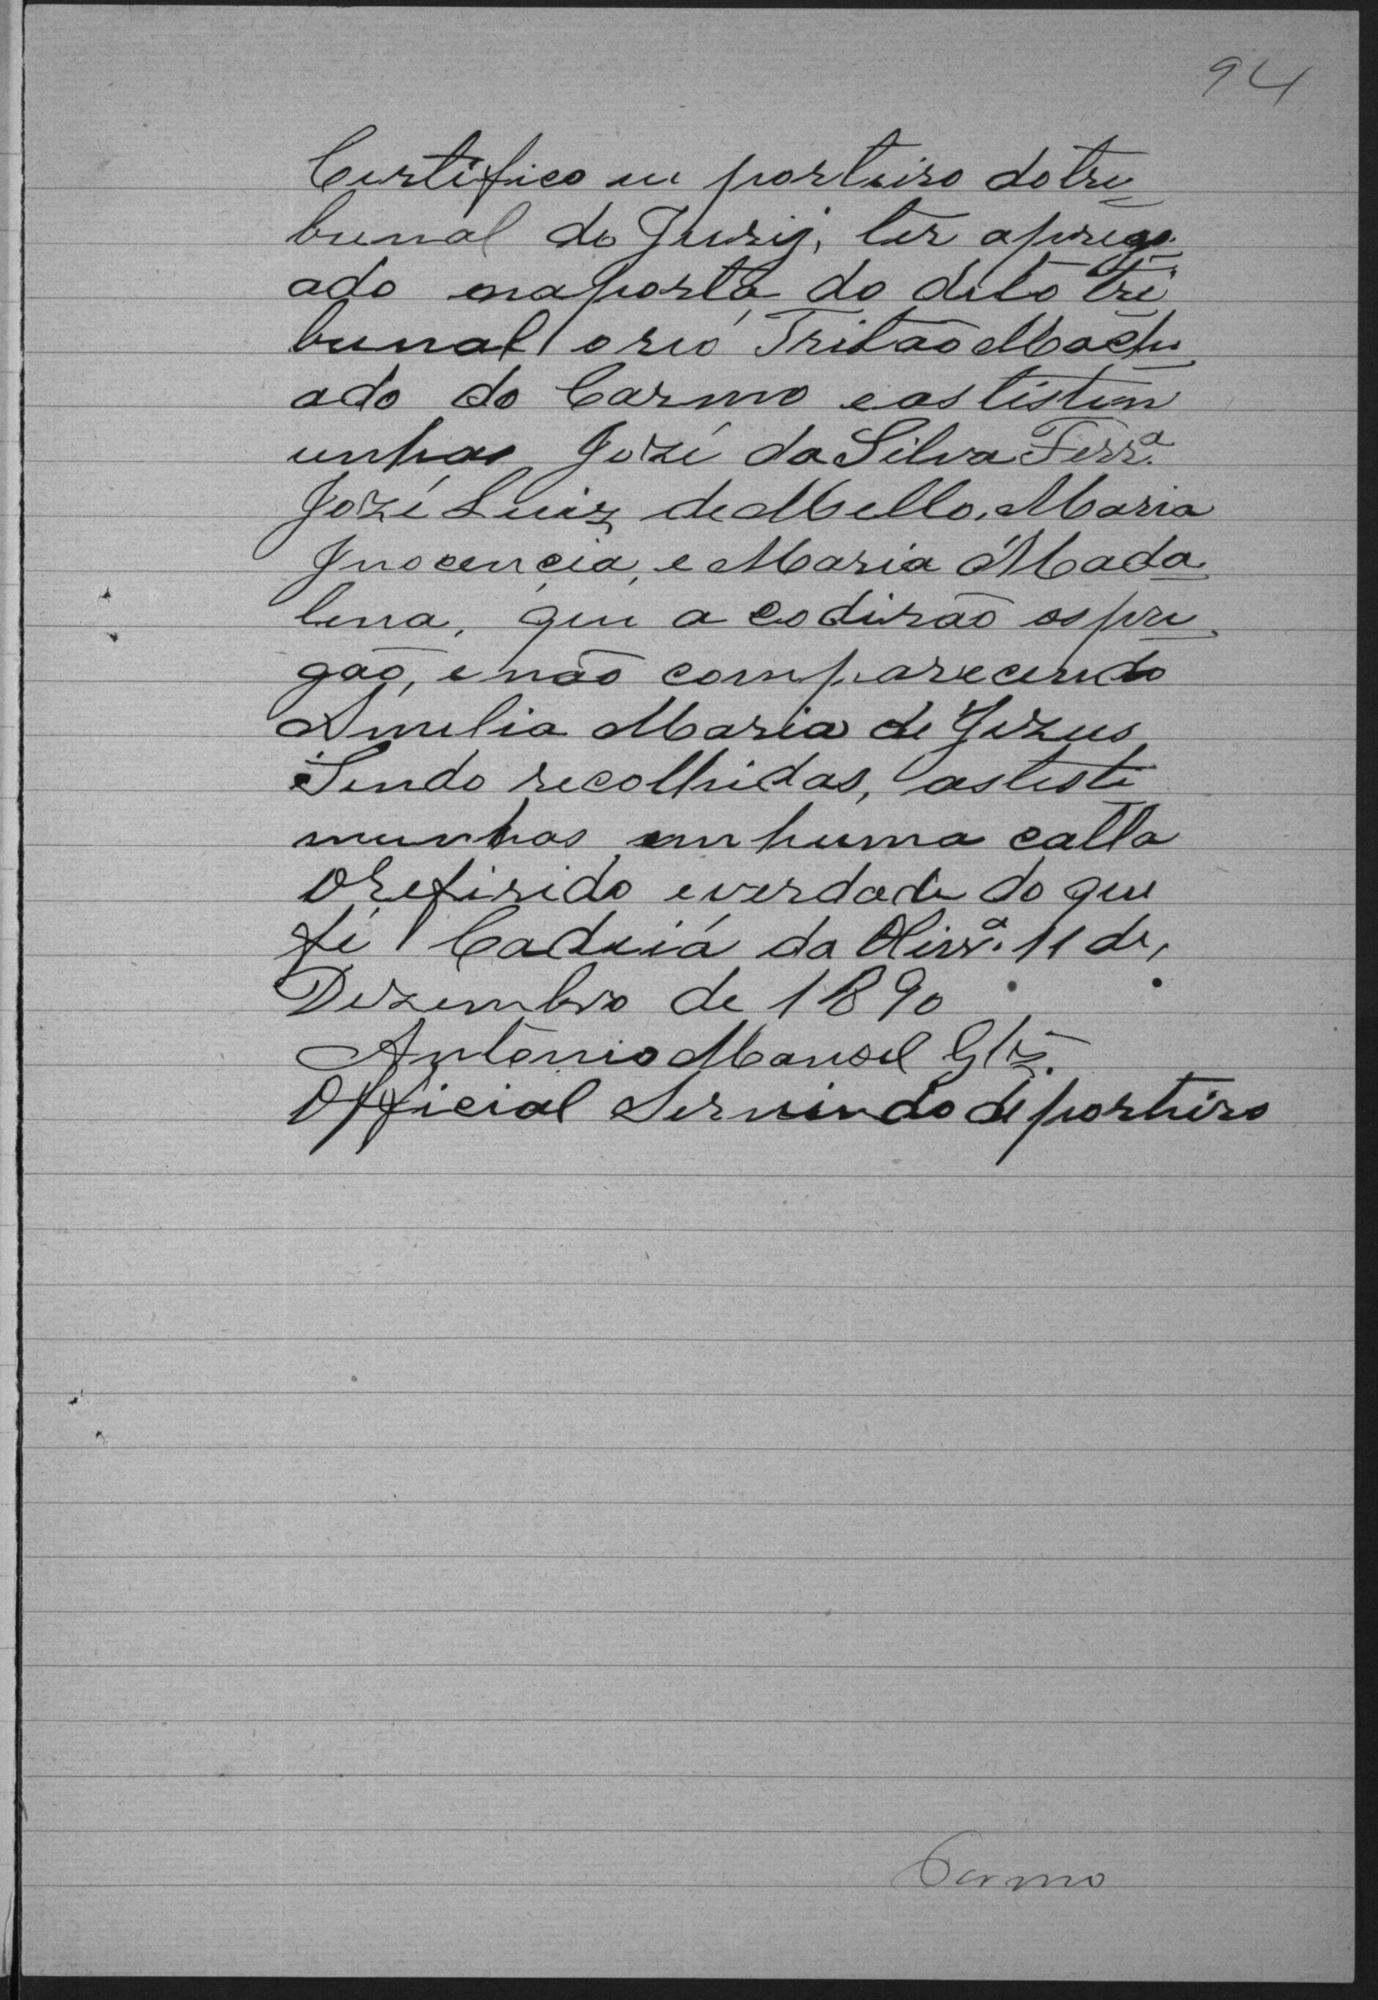 94
Certifico eu porteiro do tre
bunal do Jurij, ter aprego
ado na porta do dito tri
bunal o reo Tritão Mach
ado do Carmo e as tistim
unhas Jozé da Silva Ferrª
Jozé Luiz de Mello, Maria
Inocencia, e Maria Mada
lena, que a codirão os pre
gão, e não comparecendo
Amelia Maria de Jezus
Sendo recolhidas, as teste
munhas em huma calla
O refirido e verdade do que
fé Cadeiá da Olivrª 11 de
Dezembro de 1890
Antonio Manoel Glz.
Official Servindo de porteiro
Carmo